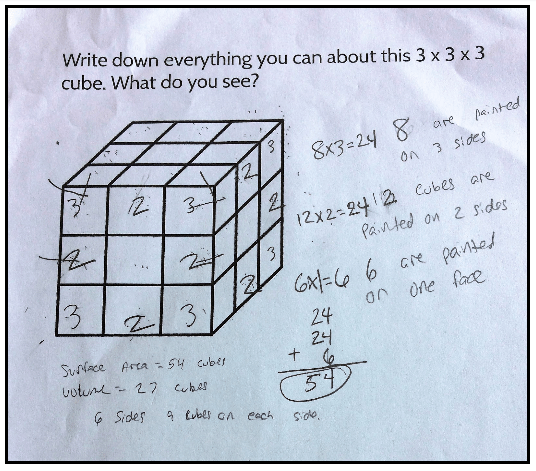 Write down everything you can about this 3 x 3 x 3
cube. What do you see?
3 2 3
2 ... 2
3 2 3
2 3
2
2 3
8x3=24 8 are painted
on 3 sides
12x2=24 12 cubes are
painted on 2 sides
6x1=6 6 are painted
on one face
24
24
+ 6
54
Surface Area = 54 cubes
volume = 27 cubes
6 sides 9 cubes on each side.